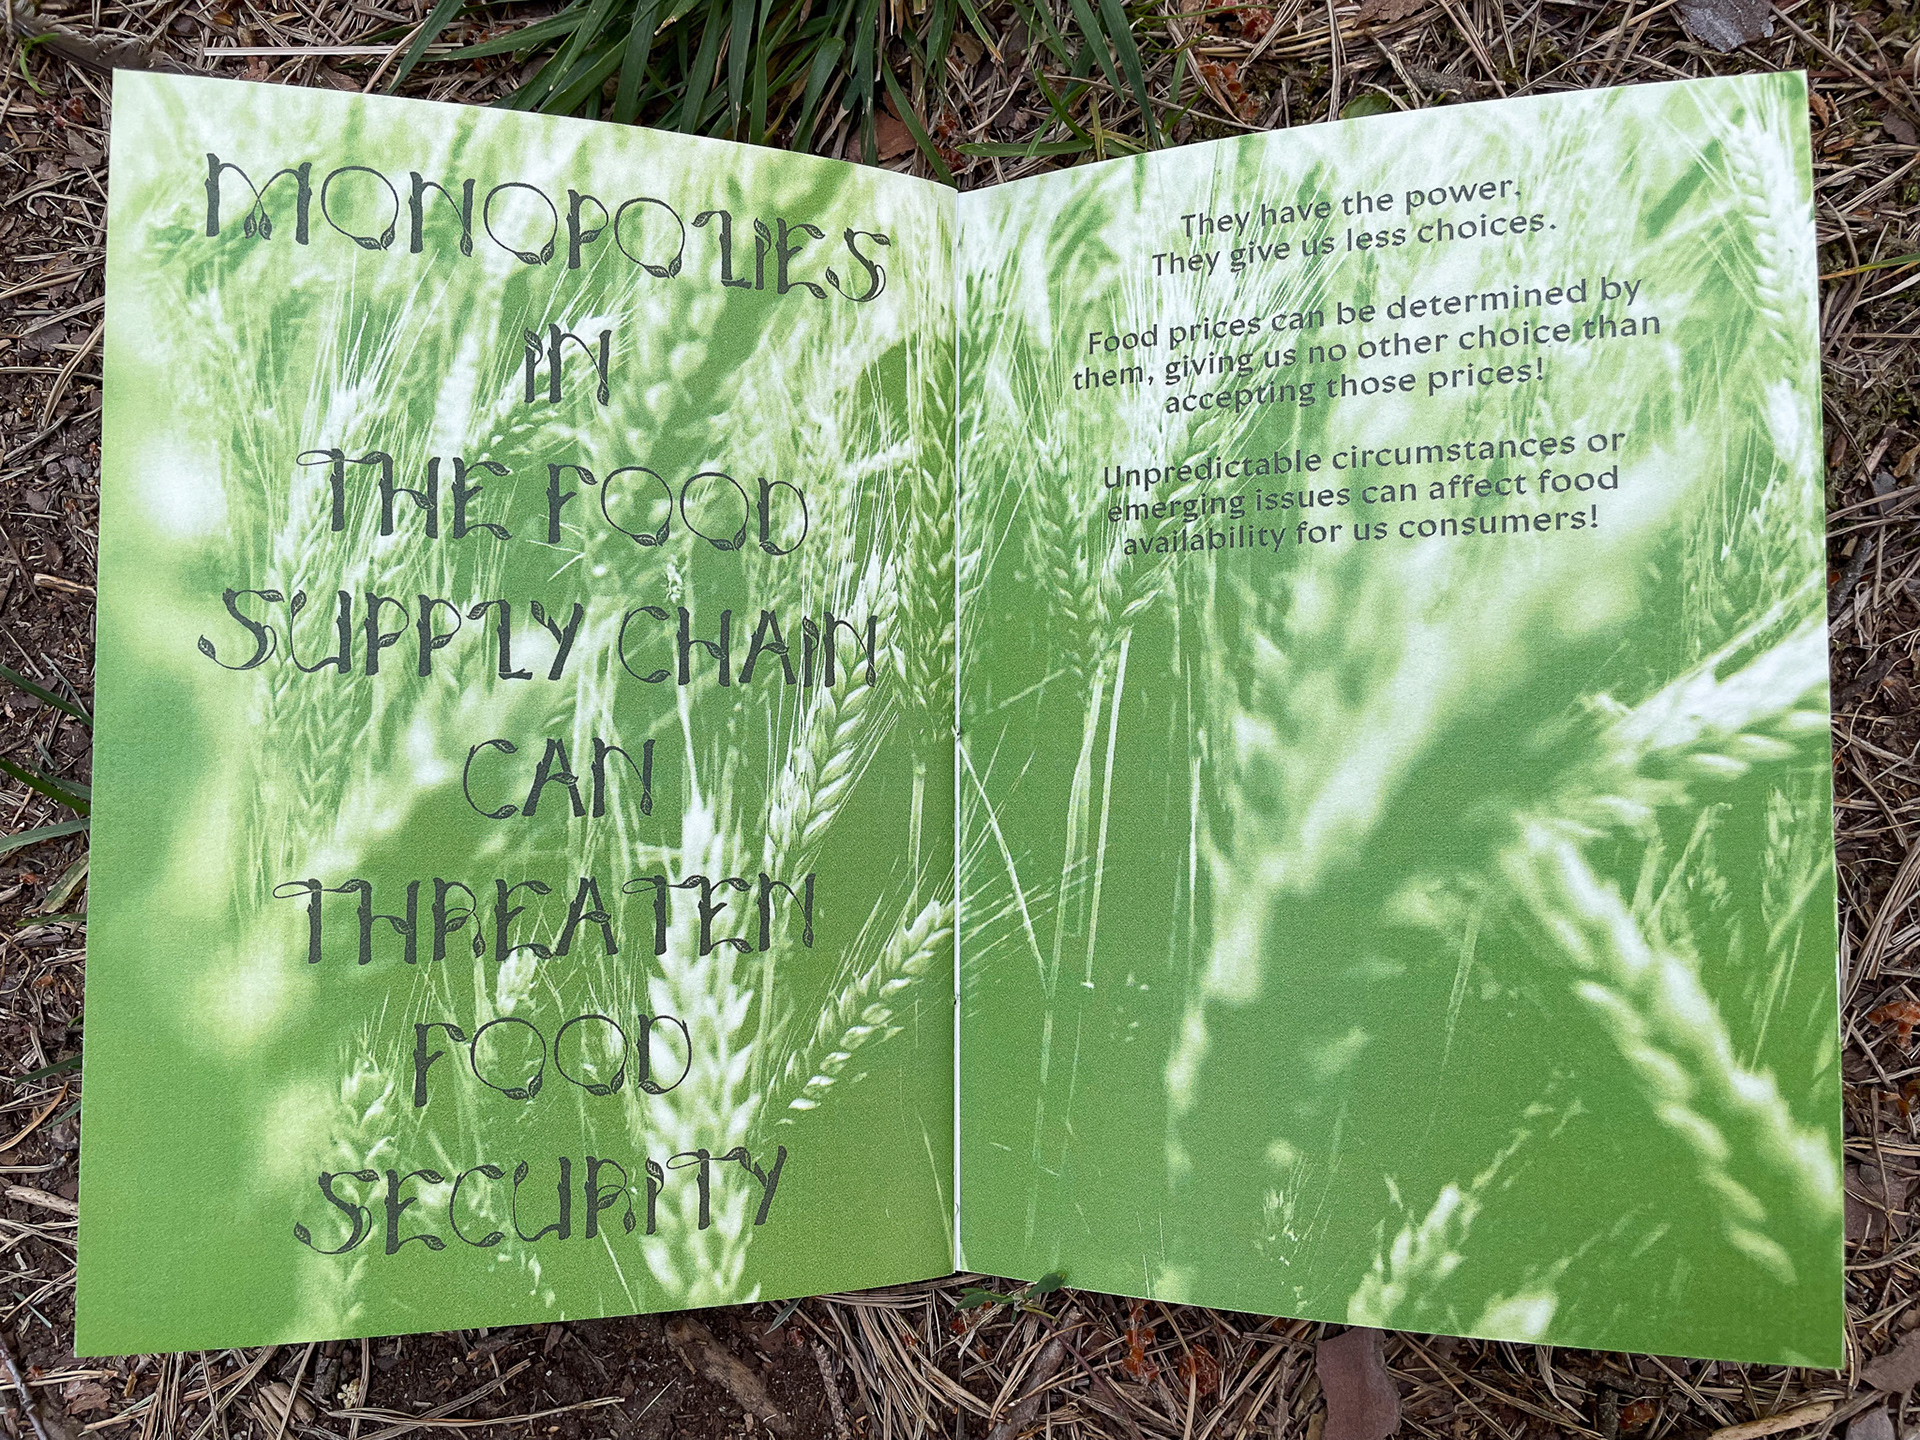 MONOPOLIES
IN
THE FOOD
SUPPLY CHAIN
CAN
THREATEN
FOOD
SECURITY
They have the power.
They give us less choices.
Food prices can be determined by
them, giving us no other choice than
accepting those prices!
Unpredictable circumstances or
emerging issues can affect food
availability for us consumers!